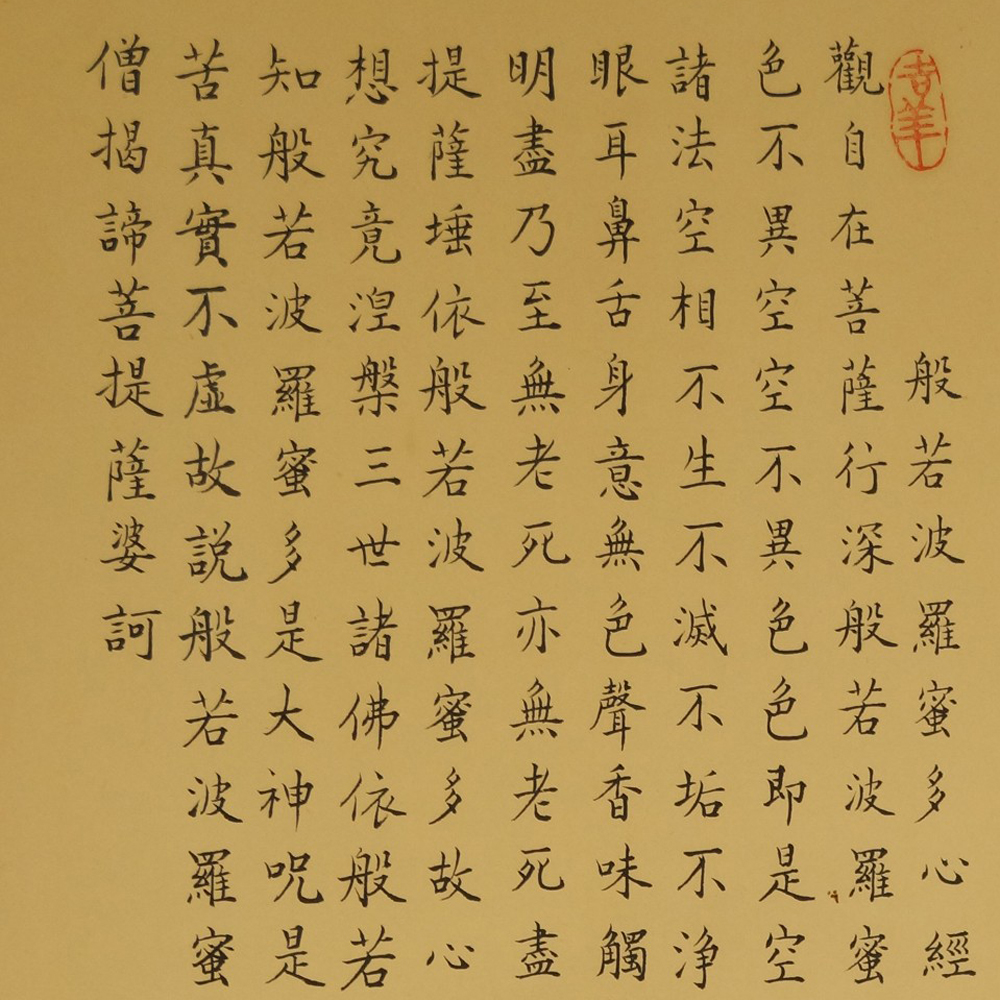 吉羊
般若波羅蜜多心經
觀自在菩薩行深般若波羅蜜
色不異空空不異色色即是空
諸法空相不生不滅不垢不浄
眼耳鼻舌身意無色聲香味觸
明盡乃至無老死亦無老死盡
提薩埵依般若波羅蜜多故心
想究竟涅槃三世諸佛依般若
知般若波羅蜜多是大神呪是
苦真實不虛故説般若波羅蜜
僧揭諦菩提薩婆訶